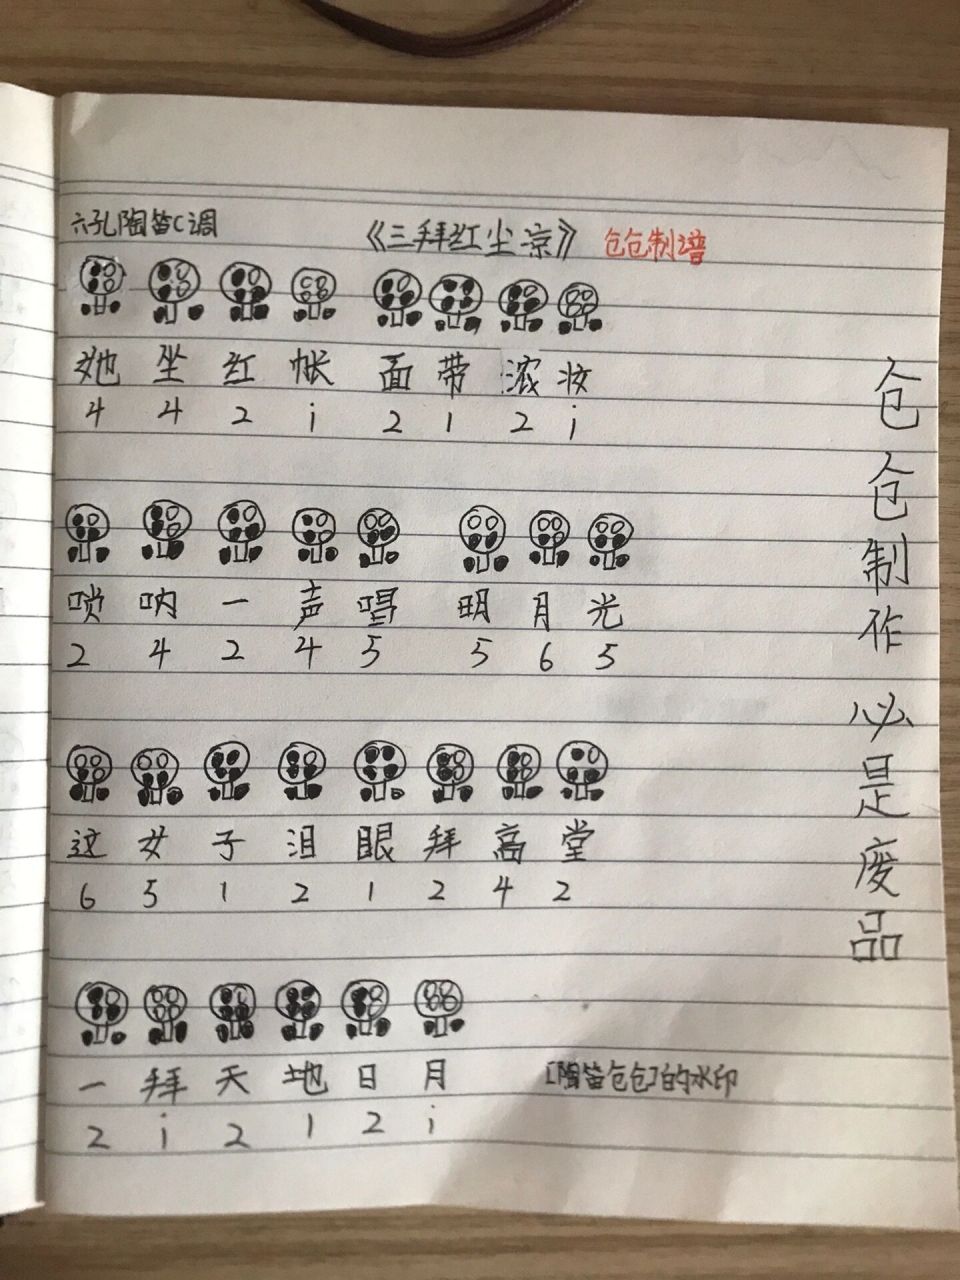 六孔陶笛C调
《三拜红尘凉》
仓仓制谱
她 坐 红 帐 面 带 浓 妆
4 4 2 i 2 1 2 i
唢 呐 一 声 唱 明 月 光
2 4 2 4 5 5 6 5
这 女 子 泪 眼 拜 高 堂
6 5 1 2 1 2 4 2
一 拜 天 地 日 月
2 i 2 1 2 i
[陶笛仓仓]的水印
仓仓制作必是废品